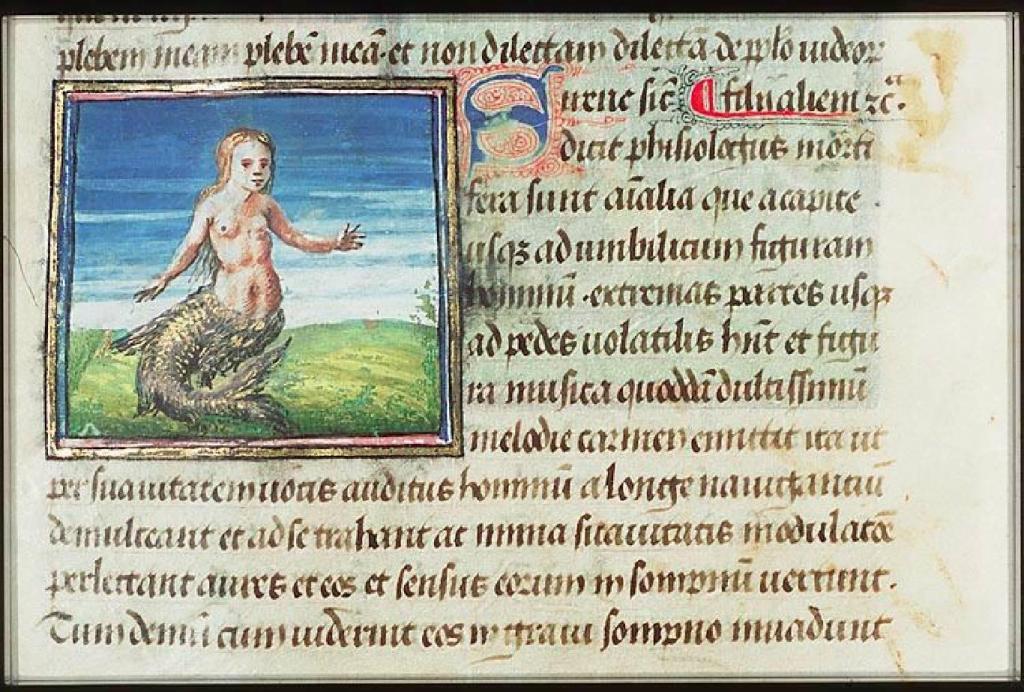 plebem meam plebē meā. et non dilectam dilectā. de pplo iudeoꝝ
Surene sic̄ ¶ filij alieni ⁊cᵃ.
Dicit phisiologus morti
fera sunt aīalia que a capite
usqꝫ ad umbilicum figuram
hominū. extremas partes usqꝫ
ad pedes uolatilis hn̄t et figu
ra musica quoddā dulcissimū
melodie carmen emittit ita ut
per suauitatem uocis auditus hominū a longe nauigantiū
demulceant et ad se trahant ac nimia suauitatis modulacōe
perlectant aures et eos et sensus eorum in sompnū uertunt.
Tum demū cum uiderint eos in graui sompno inuadunt